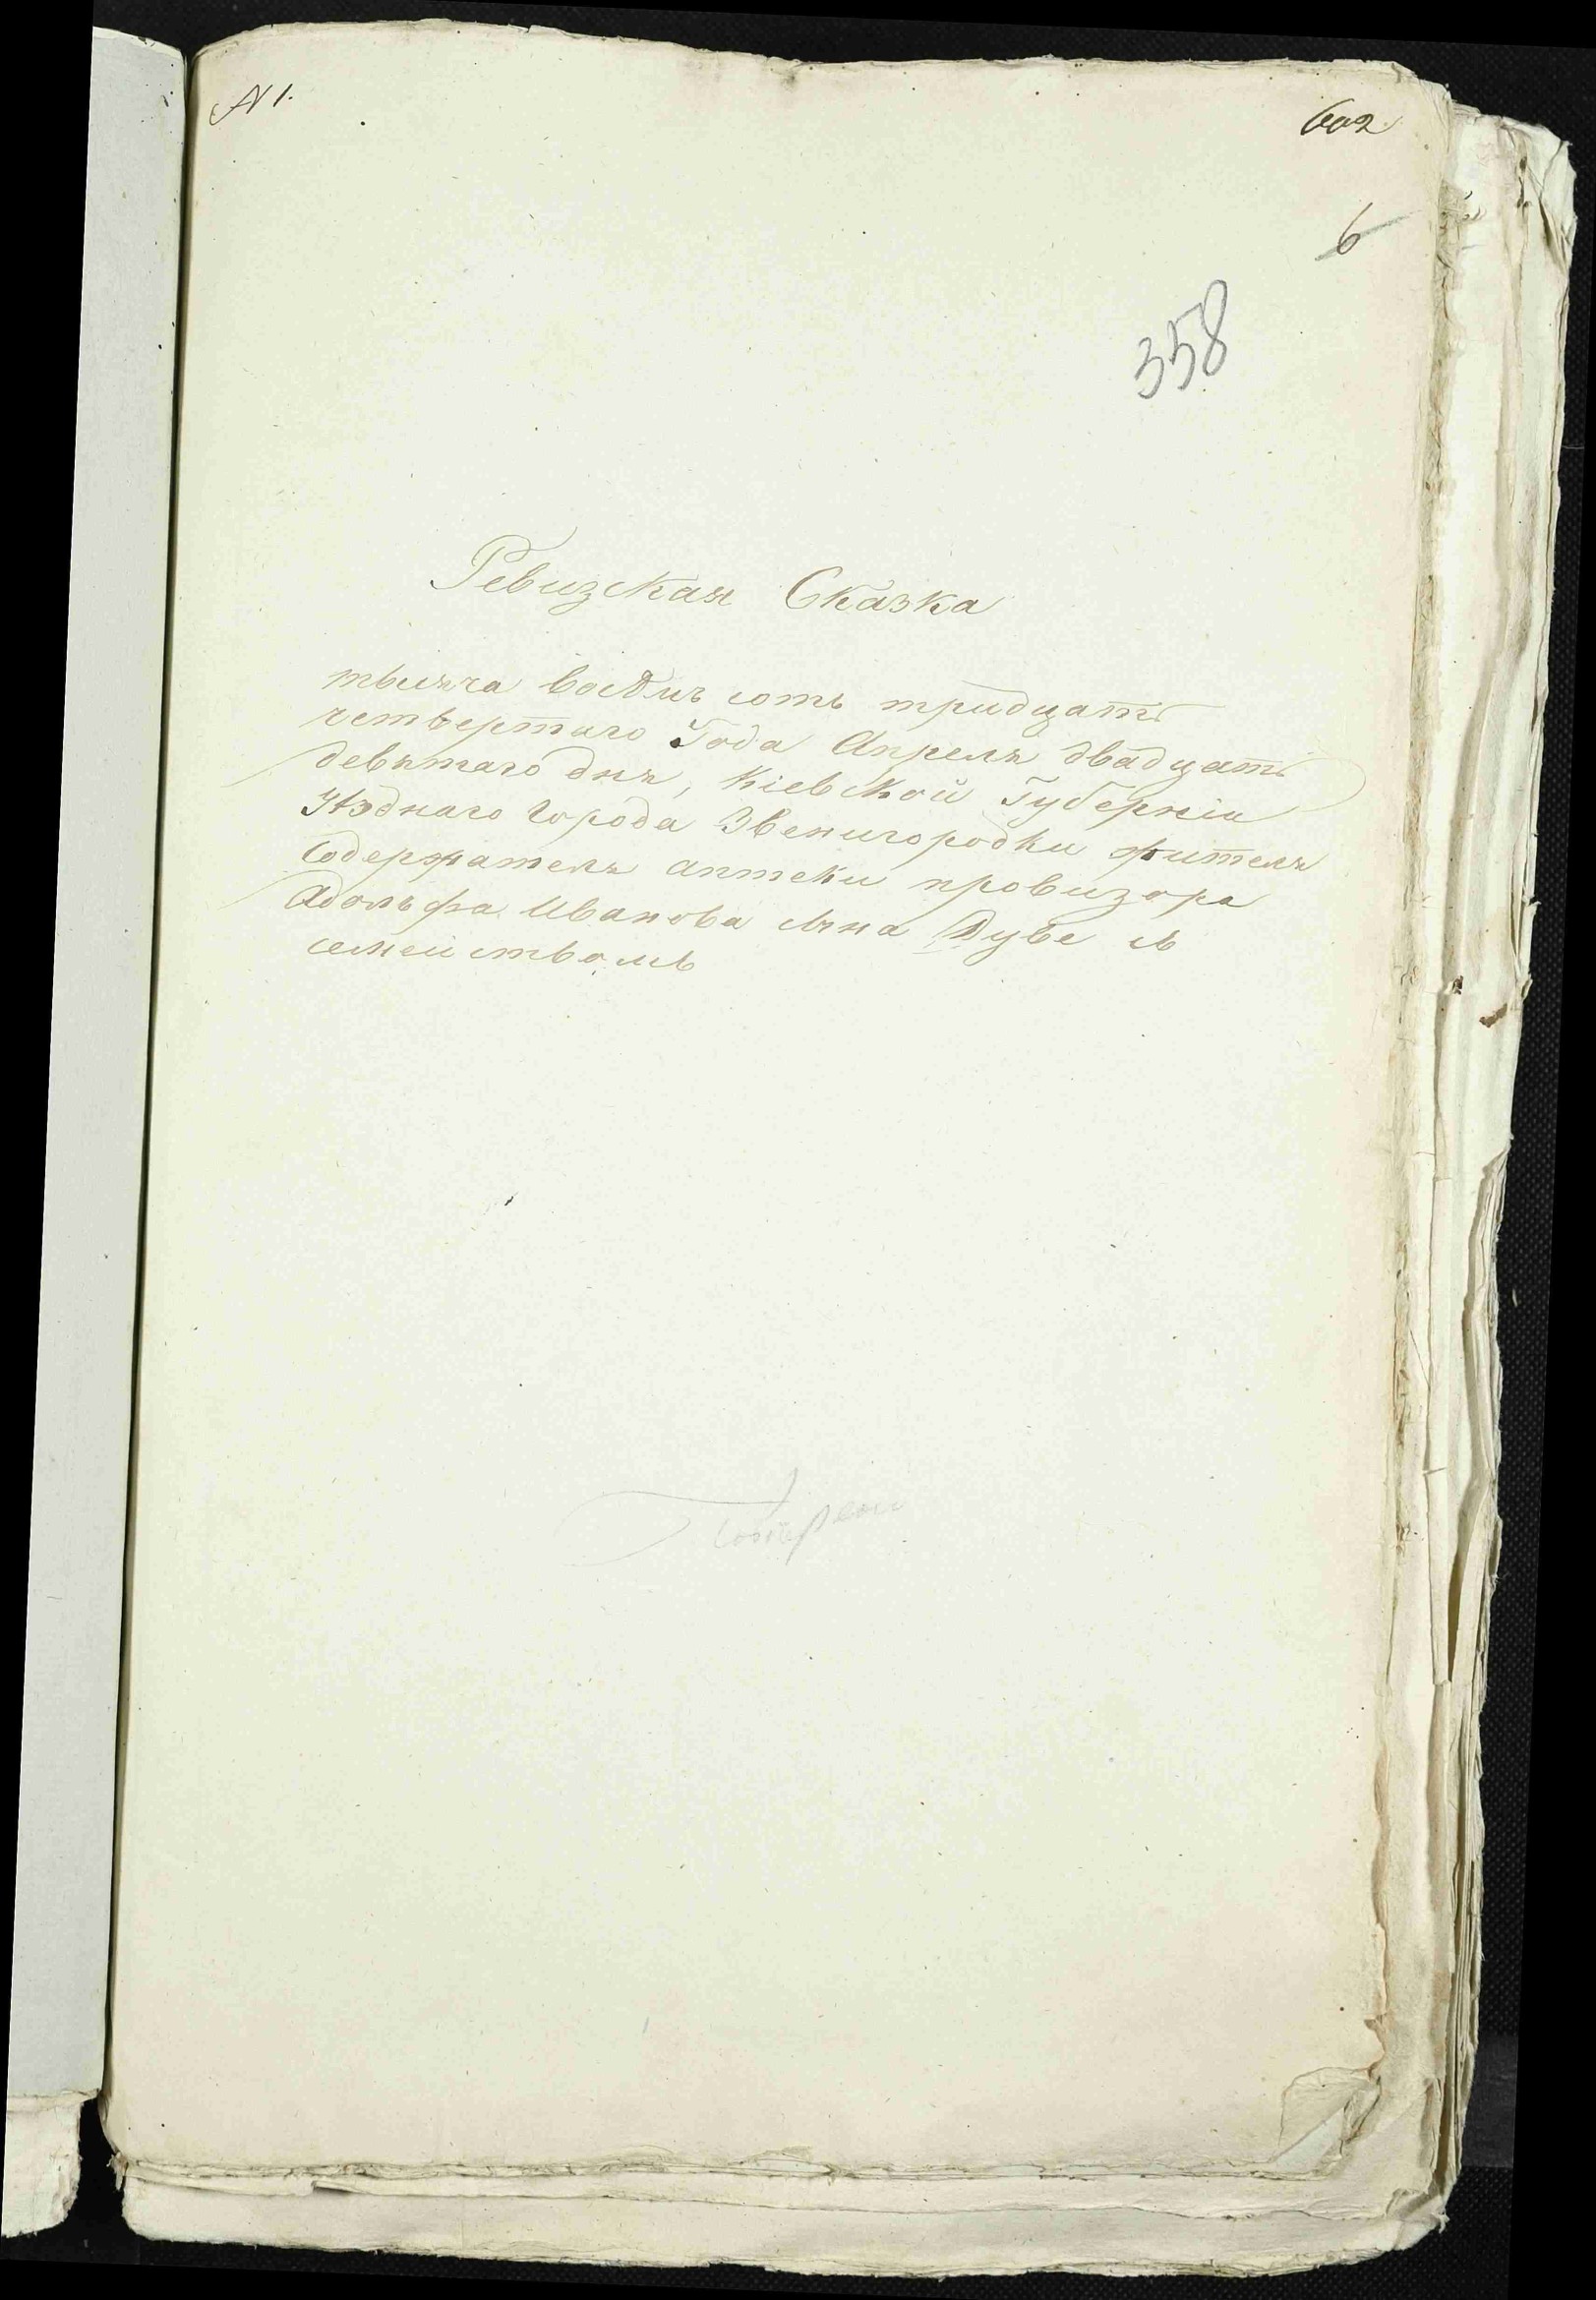 № 1.
602
6
358
Ревизская Сказка
тысяча восемь сотъ тридцать
четвертаго Года Апреля двадцать
девятаго дня, Кіевской Губерніи
Уѣзднаго Города Звенигородки жителя
Содержателя аптеки провизора
Адольфа Иванова сына Дубе съ
семействомъ